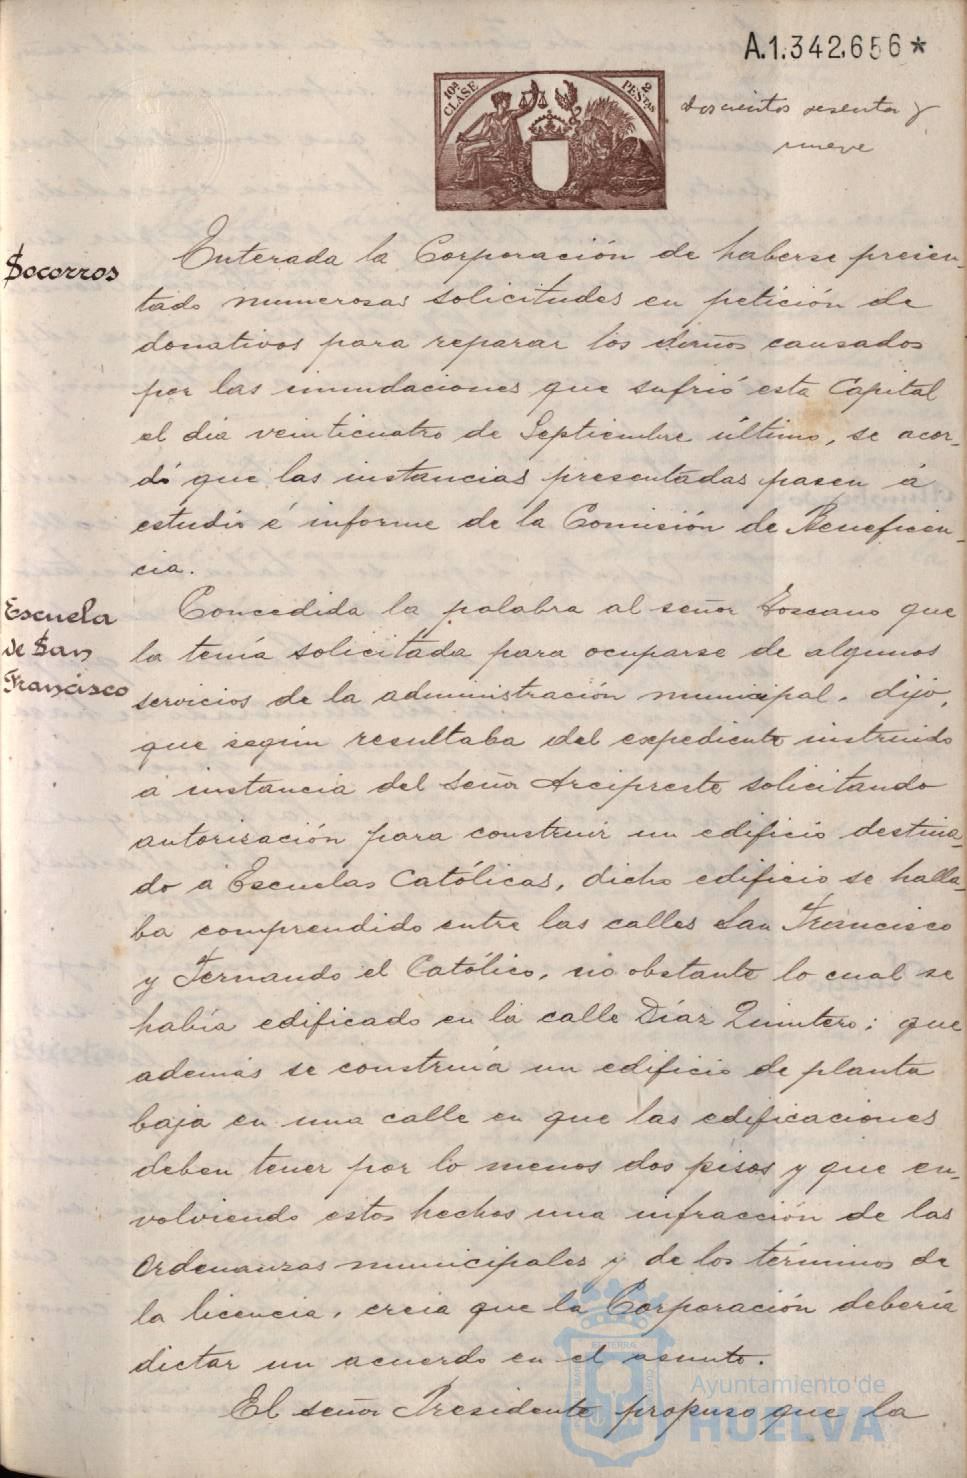 A.1.342.656*
10ª CLASE
2 PESTAS
doscientos sesenta y
nueve
Socorros
Enterada la Corporación de haberse presen-
tado numerosas solicitudes en petición de
donativos para reparar los daños causados
por las inundaciones que sufrió esta Capital
el dia veinticuatro de Septiembre último, se acor-
dó que las instancias presentadas pasen á
estudio é informe de la Comisión de Beneficen-
cia.
Escuela
de San
Francisco
Concedida la palabra al señor Toscano que
la tenía solicitada para ocuparse de algunos
servicios de la administración municipal, dijo,
que según resultaba del expediente instruido
á instancia del Señor Arcipreste solicitando
autorización para construir un edificio destina-
do á Escuelas Católicas, dicho edificio se halla-
ba comprendido entre las calles San Francisco
y Fernando el Católico, no obstante lo cual se
había edificado en la calle Díaz Quintero; que
además se construía un edificio de planta
baja en una calle en que las edificaciones
deben tener por lo menos dos pisos y que en-
volviendo estos hechos una infracción de las
Ordenanzas municipales y de los términos de
la licencia, creia que la Corporación debería
dictar un acuerdo en el asunto.
El señor Presidente propuso que la
Ayuntamiento de
HUELVA